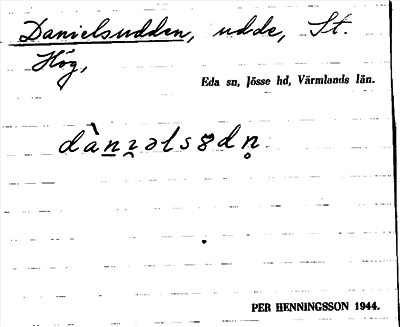 Danielsudden, udde, St.
Hög,
Eda sn, Jösse hd, Värmlands län.
dàn̠ı̯əlsȣdn̥
PER HENNINGSSON 1944.